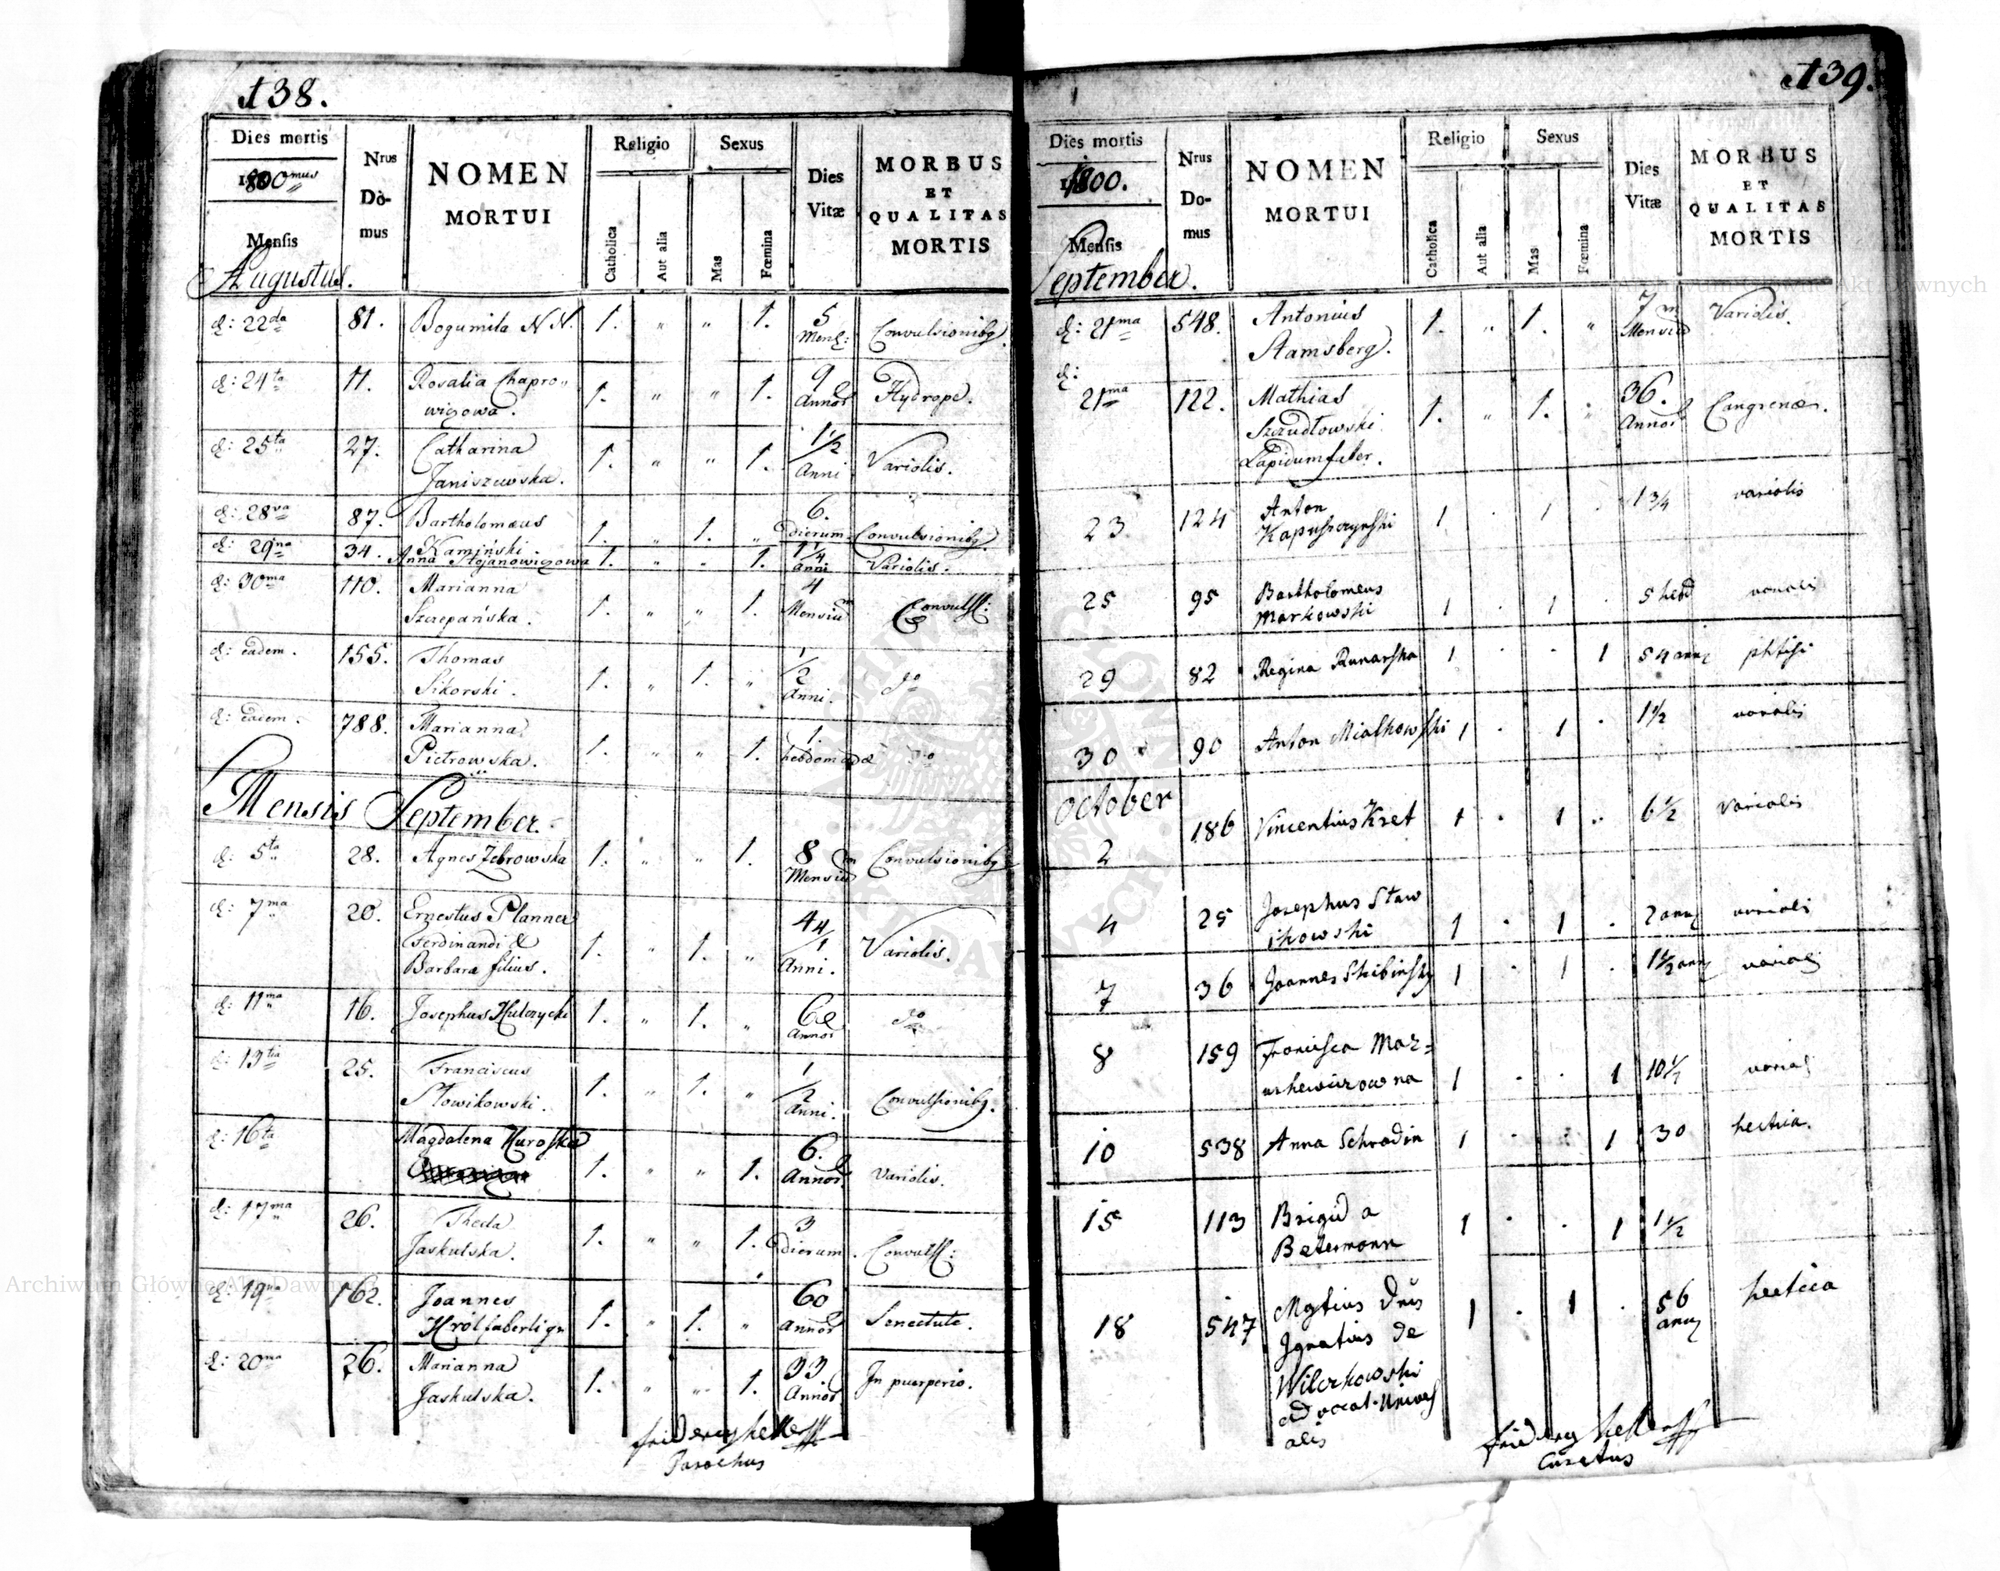 138.
Dies mortis
1800mus
Mensis
Augustus.
Nrus
Do-
mus
NOMEN
MORTUI
Religio
Catholica
Aut alia
Sexus
Mas
Fœmina
Dies
Vitæ
MORBUS
ET
QUALITAS
MORTIS
d: 22da 81. Bogumila N.N. 1. " " 1. 5 Convulsionibq.
Mens:
d: 24ta 11. Rosalia Chapro„ 1. " " 1. 9 Hydrope.
wiczowa. Annor
d: 25ta 27. Catharina 1. " " 1. 1½ Variolis.
Janiszewska. Anni
d: 28va 87. Bartholomæus 1. " 1. " 6. Convulsionibq.
Kamiński. dierum
d: 29na 34. Anna Stojanowiczowa 1. " " 1. 1/4 Variolis.
Anni
d: 30ma 110. Marianna 1. " " 1. 4 Convuls:
Szczepańska. Mensium
d: eadem. 155. Thomas 1. " 1. " 1/2 do
Sikorski. Anni.
d: eadem. 788. Marianna 1. " " 1. 1. do
Pietrowska. hebdomadæ
Mensis September.
d: 5ta 28. Agnes Zebrowska 1. " " 1. 8 Convulsionibq
Mensium
d: 7ma 20. Ernestus Planner 1. " 1. "
Ferdinandi & Variolis.
Barbara filius. Anni.
d: 11ma 16. Josephus 1. " 1. " 6 do
Annor
d: 13tia 25. Franciscus 1. " 1. " 1/2 Convulsionibq.
Słowikowski. Anni.
d: 16ta Magdalena Kuroska 1. " " 1. 6. Variolis.
Annor
d: 17ma 26. Thecla 1. " " 1. 3 Convuls:
Jaskulska. dierum.
d: 19na 162. Joannes 1. " 1. " 60 Senectute.
Król faberlign Annor
d: 20ma 26. Marianna 1. " " 1. 33 In puerperio.
Jaskulska. Annor
Parochus
139.
Dies mortis
1800.
Mensis
September.
Nrus
Do-
mus
NOMEN
MORTUI
Religio
Catholica
Aut alia
Sexus
Mas
Fœmina
Dies
Vitæ
MORBUS
ET
QUALITAS
MORTIS
d: 21ma 548. Antonius 1. " 1. " 7 Variolis.
Stamsberg. Mensium
d:
21ma 122. Mathias 1. " 1. " 36. Cangrenæ.
Szadłowski Annor
Lapidumfaber.
23 124 Anton 1 . 1 . 1¾ variolis
Kapuszczynski
25 95 Bartholomeus 1 . 1 . 5 hebd variolis
Markowski
29 82 Regina 1 . . 1 54 ann phtisi
30 90 Anton Miałkowski 1 . 1 . 1½ variolis
October
2 186 Vincentius Kret 1 . 1 . 6½ variolis
4 25 Josephus Staw 1 . 1 . 2 ann variolis
ikowski
7 36 Joannes Skibinsky 1 . 1 . 1½ ann variolis
8 159 Francisca Maz= 1 . . 1 variolis
urkewiczowna
10 538 Anna Schradin 1 . . 1 30 hectica.
15 113 Brigida 1 . . 1 1½
Betermann
18 547 Mgfius Dnus 1 . 1 . 56 hectica
Ignatius de ann
Wilczkowski
advocat. Univers
alis
Curatus
Archiwum Główne Akt Dawnych
Archiwum Główne Akt Dawnych
ARCHIWUM GŁÓWNE AKT DAWNYCH